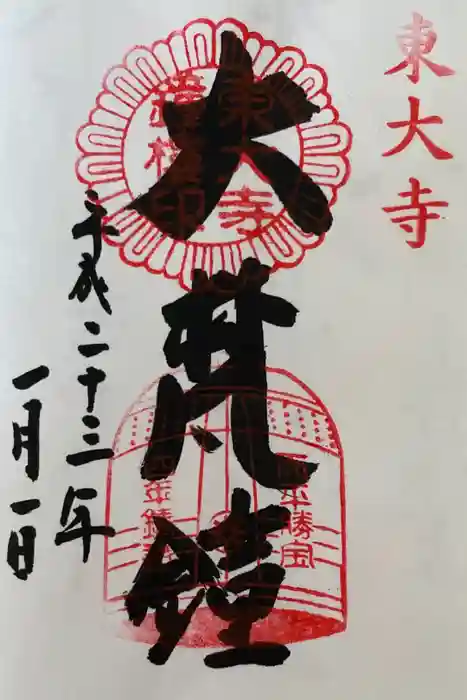 東大寺
大梵鐘
平成二十三年
一月一日
東大寺
鐘楼印
天平勝宝
四年鋳